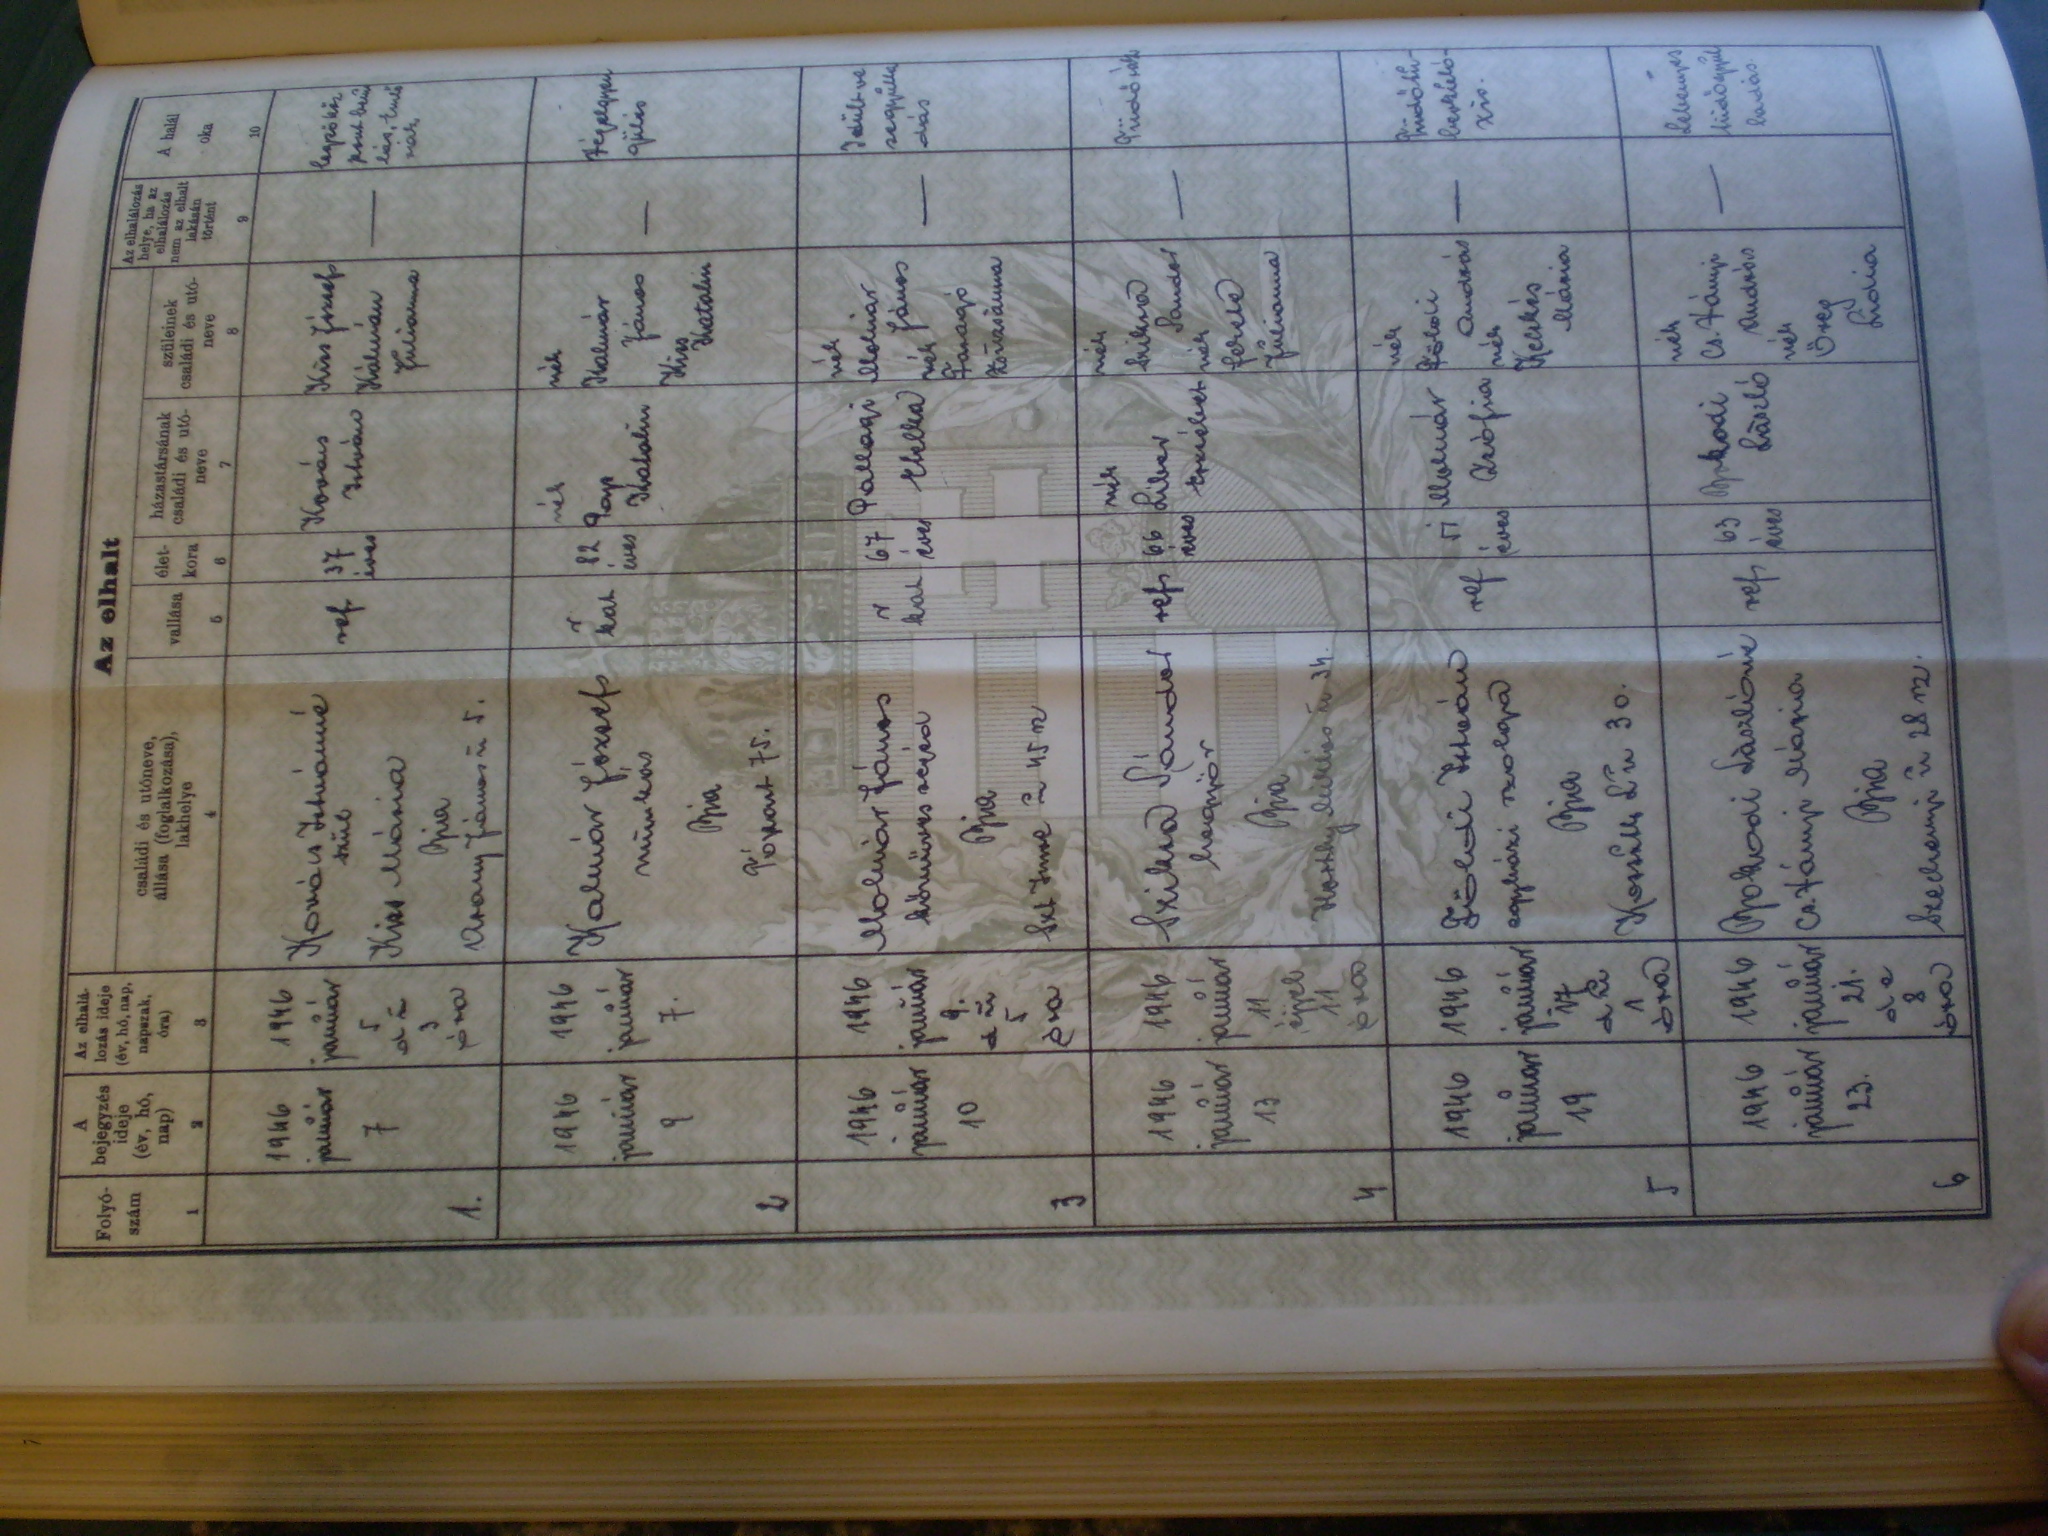 Az elhalt
Folyó-
szám
A
bejegyzés
ideje
(év, hó,
nap)
Az elhalá-
lozás ideje
(év, hó, nap,
napszak,
óra)
családi és utóneve,
állása (foglalkozása),
lakhelye
vallása
élet-
kora
házastársának
családi és utó-
neve
szüleinek
családi és utó-
neve
Az elhalálozás
helye, ha az
elhalálozás
nem az elhalt
lakásán
történt
A halál
oka
1
2
3
4
5
6
7
8
9
10
1.
1946
január
7
1946
január
5
d u
3
óra
Kovács Istvánné
szül
Kiss Mária
Bia
Arany János u 5.
ref
37
éves
Kovács
István
Kiss József
Kálmán
Julianna
—
2
1946
január
9
1946
január
7.
Kalmár József
munkás
Bia
75.
r
kat
82
éves
néh
Papp
Katalin
néh
Kalmár
János
Kiss
Katalin
—
Végelgyen
gülés
3
1946
január
10
1946
január
9.
d u
5
óra
Molnár János
kőműves segéd
Bia
Szt Imre u 45 sz
r
kat
67
éves
Pallagi
néh
Molnár
János
néh
Faragó
—
4
1946
január
13
1946
január
11
éjjel
11
óra
Szikra Sándor
Bia
Horthy Miklós u 34.
ref
66
éves
néh
Erzsébet
néh
Szikra
Sándor
néh
Julianna
—
Tüdőrák
5
1946
január
19
1946
január
17
d u
1
óra
István
egyházi szolga
Bia
Kossuth L u 30.
ref
51
éves
Molnár
Zsófia
néh
András
néh
Kecskés
Mária
—
6
1946
január
23.
1946
január
21.
d e
8
óra
Bokodi Lászlóné
Cs. Tányi Mária
Bia
Szechenyi u 28 sz.
ref
63
éves
Bokodi
László
néh
Cs. Tányi
András
néh
Öreg
Lidia
—